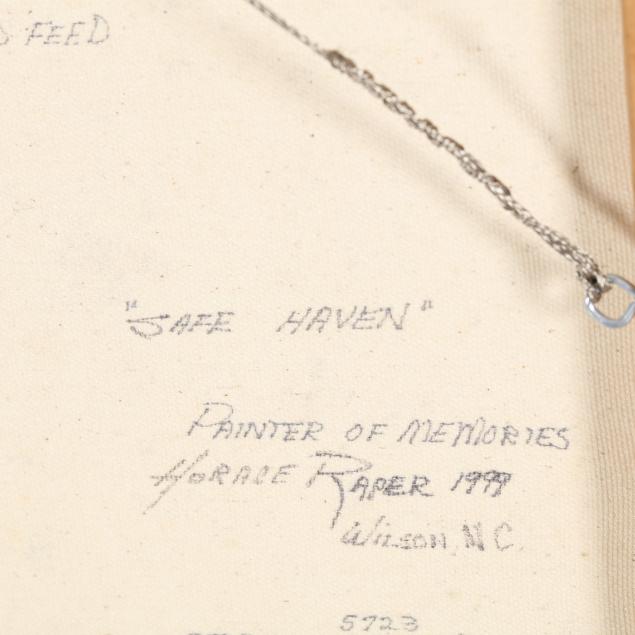 FEED
"SAFE HAVEN"
PAINTER OF MEMORIES
HORACE RAPER 1999
WILSON, N.C.
5723